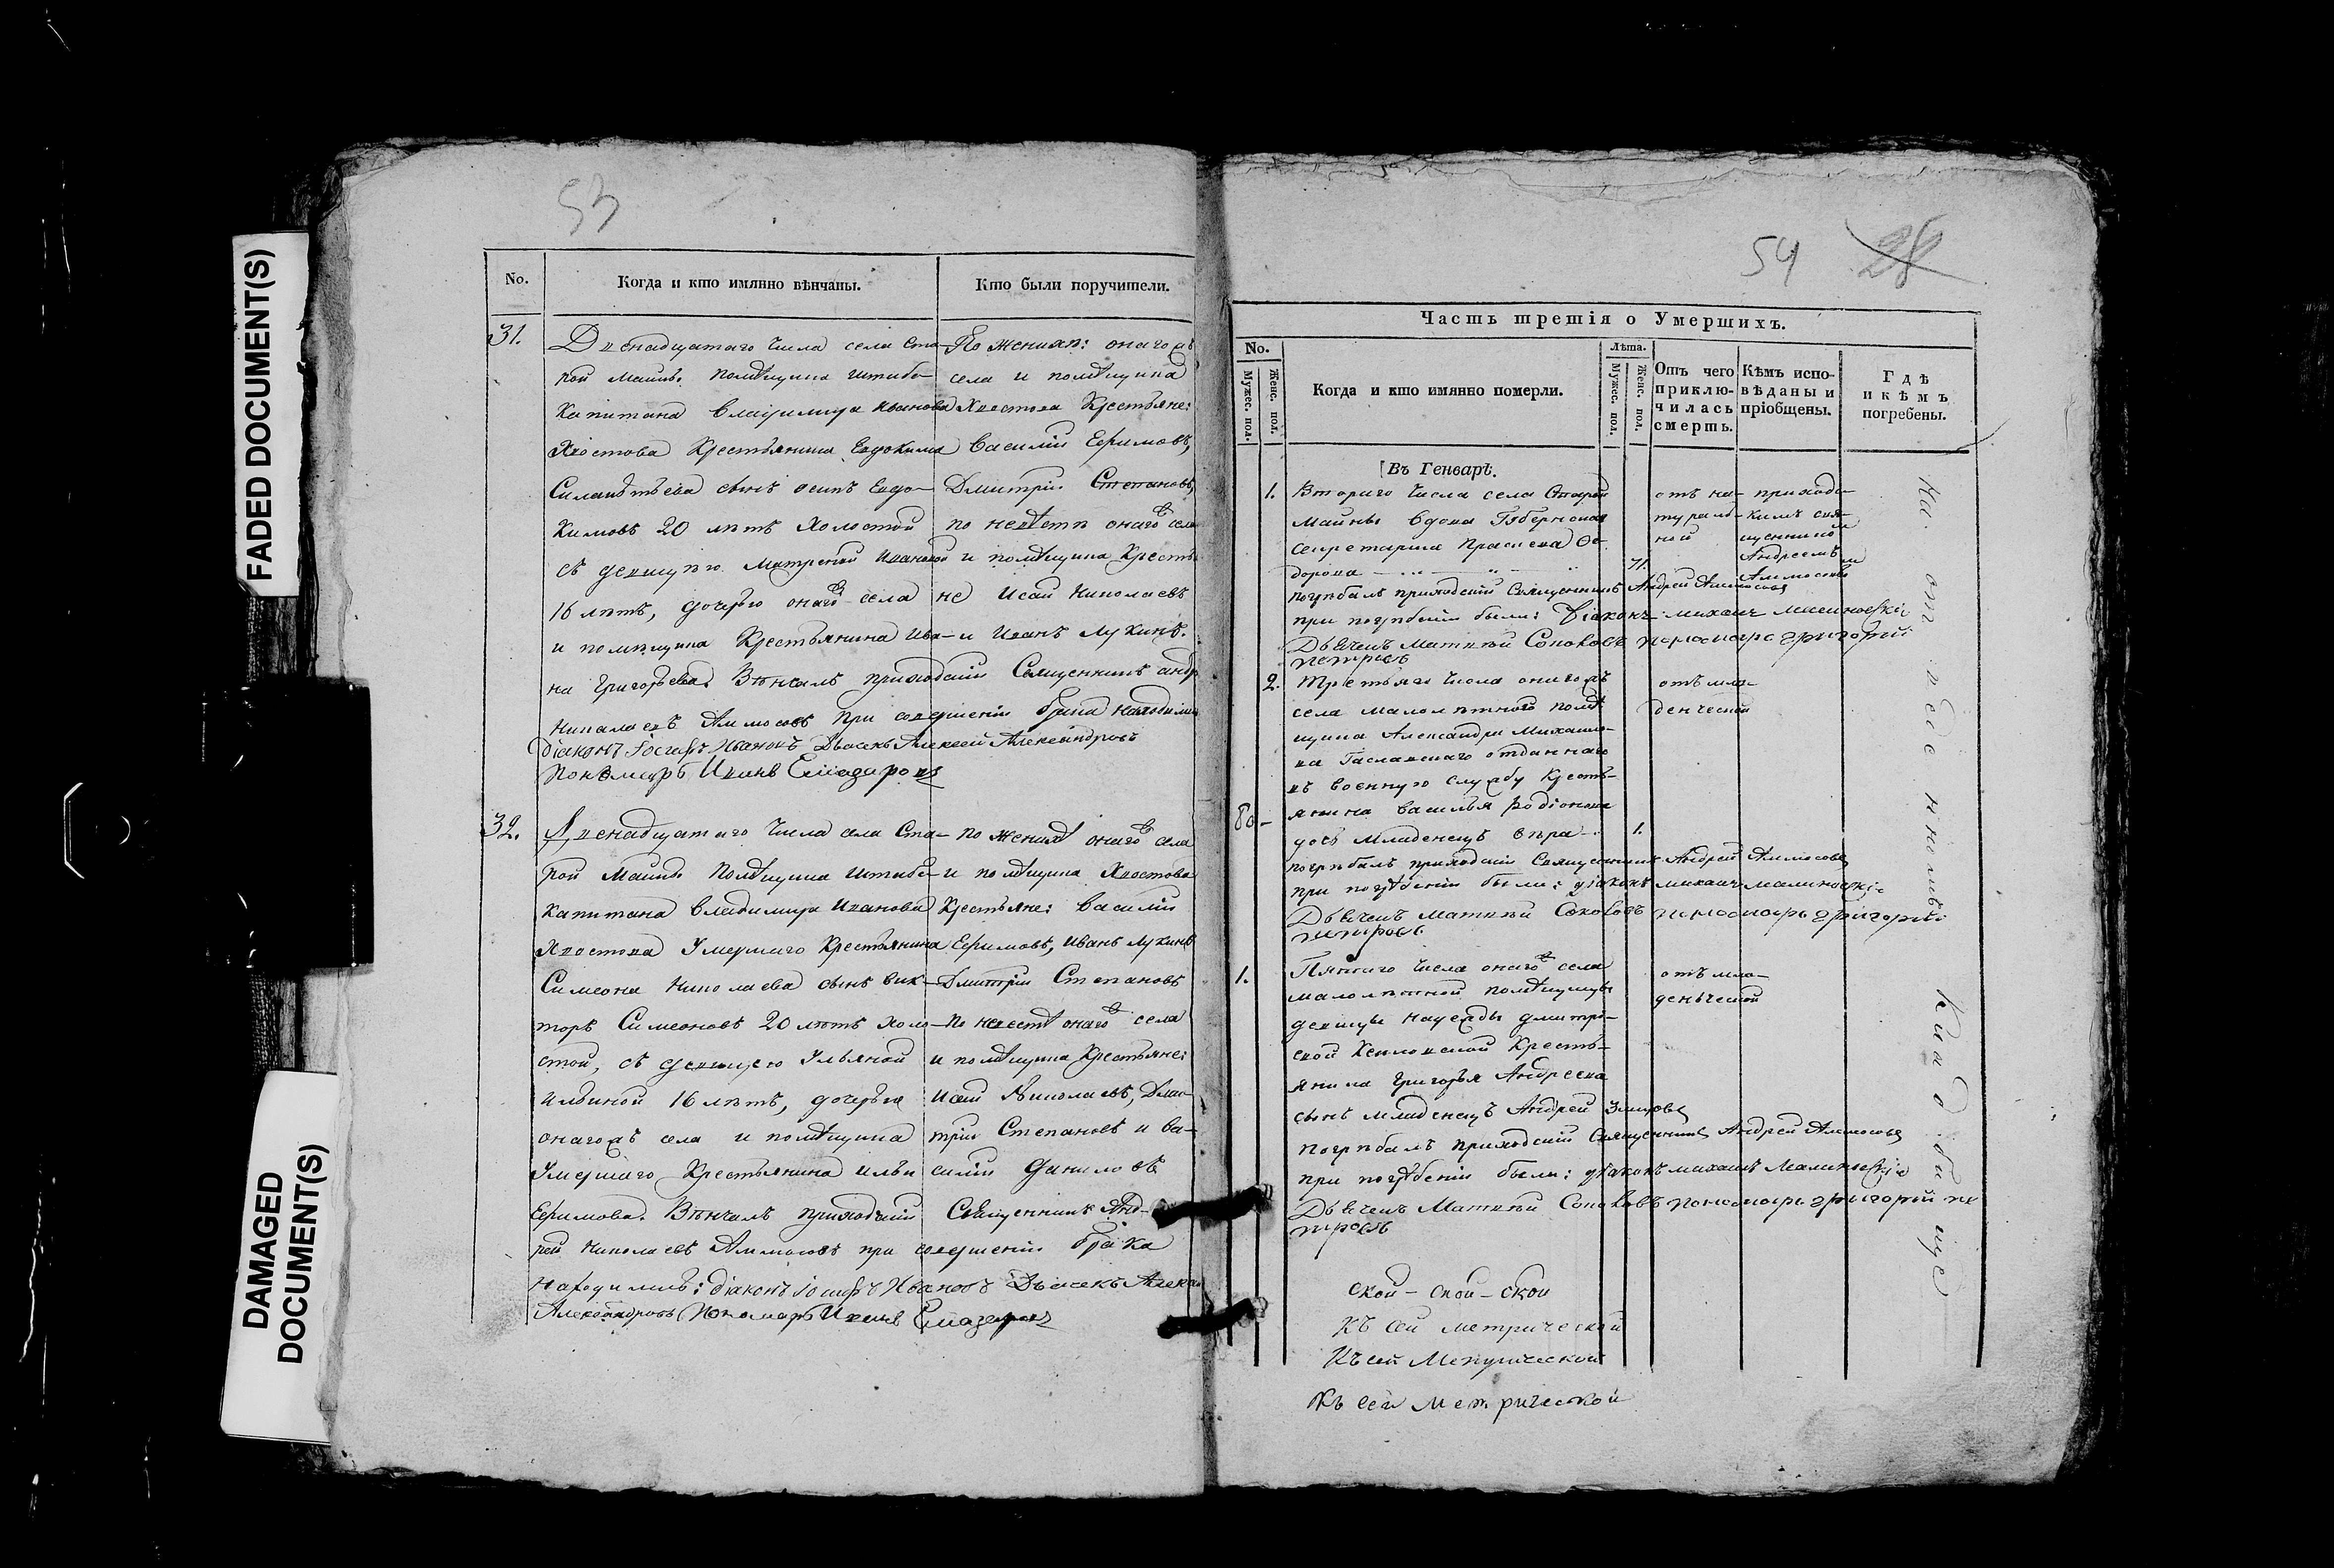 FADED DOCUMENT(S)
DAMAGED
DOCUMENT(S)
53
No.
Когда и кто имянно вѣнчаны.
Кто были поручители.
31.
Двенадцатаго числа села Ста-
рой Майны помѣщика штабс-
Капитана Владимира Иванова
Хвостова Крестьянина Евдокима
сынъ осипъ Евдо-
кимовъ 20 лѣтъ холостой
съ девицею Матреной Ивановой
16 лѣтъ, дочерью онаго села
и помѣщика Крестьянина Ива-
на Григорьева. Вѣнчалъ приходскій Священникъ андр
Николаевъ Аммосовъ при совершеніи брака находились
діаконъ Іосифъ Ивановъ Дьячекъ Алексей Александровъ
Пономарь Иванъ
По женихѣ: онагожъ
села и помѣщика
Хвостова Крестьяне:
Василій Ефимовъ,
Дмитрій Степановъ,
по невѣсте онаго села
и помѣщика Крестья
не Исай Николаевъ
и Иванъ Лукинъ.
32.
Двенадцатаго числа села Ста-
рой Майны помѣщика штабс-
капитана Владимира Иванова
Хвостова Умершаго Крестьянина
Симеона Николаева сынъ Вик-
торъ Симеоновъ 20 лѣтъ холо-
стой, съ девицею Ульяной
Ильиной 16 лѣтъ, дочерью
онагожъ села и помѣщика
Умершаго Крестьянина Ильи
Ефимова. Вѣнчалъ приходскій Священникъ Анд-
рей Николаевъ Аммосовъ при совершеніи брака
находились: діаконъ Іосифъ Ивановъ Дьячекъ Алексей
Александровъ Пономарь Иванъ
по женихѣ онаго села
и помѣщика Хвостова
Крестьяне: Василій
Ефимовъ, Иванъ Лукинъ
Дмитрій Степановъ
По невестѣ онаго села
и помѣщика Крестьяне:
Исай Николаевъ, Дми-
трій Степановъ и Ва-
силій Даниловъ
54
28
Часть третія о Умершихъ.
No.
Мужес. пол.
Женс. пол.
Когда и кто имянно померли.
Лѣта.
Мужес. пол.
Женс. пол.
Отъ чего
приклю-
чилась
смерть.
Кѣмъ испо-
вѣданы и
пріобщены.
Гдѣ
и кѣмъ
погребены.
Въ Генварѣ.
1.
Втораго числа села Старой
Майны вдова Губернская
секретарша Прасковья Фе-
дорова
71.
отъ на-
тураль-
ной
приходс-
кимъ свя-
щенником
Андреемъ
Аммосовым
погребалъ приходскій Священникъ Андрей Аммосовъ
при погребеніи были: Діаконъ михаил малиновскій
Дьячекъ Матвѣй Соколовъ пономарь григорій
петровъ
2.
Третьяго числа онагожъ
села малолѣтнаго помѣ
щика Александра Михайло-
ва отданнаго
въ военную службу крестья-
янина Василья Родіонова
дочь младенецъ
1.
отъ мла-
денческой
погребалъ приходскій Священникъ Андрей Аммосовъ
при погребеніи были: діаконъ михаил малиновскій
Дьячекъ Матвѣй Соколовъ пономарь григорій
петровъ
1.
Пятаго числа онаго села
малолѣтной помѣщицы
девицы надежды дмитри-
евой Крестья-
янина Григорья Андреева
сынъ младенецъ Андрей
отъ мла-
денческой
погребалъ приходскій Священникъ Андрей Аммосовъ
при погребеніи были: діаконъ михаилъ Малиновскій
Дьячекъ Матвѣй Соколовъ пономарь григорій пе
тровъ
ской - ской - ской
Къ сей метрической
Къ сей Метрической
Къ сей метрической
На
Кладбище